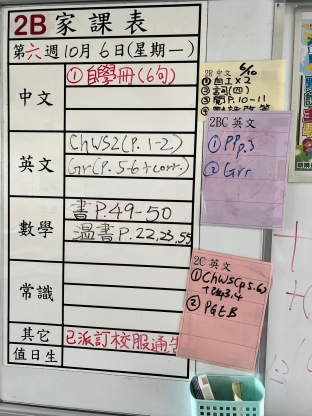 2B 家課表
第六週10月6日(星期一)
中文
①自學冊(6句)
英文
ChWS2(P.1-2)
Gr(P.5-6+corr.)
數學
書P.49-50
溫書P.22,23,55
常識
其它
已派訂校服通告
值日生
2B 中文 6/10
①自工×2
②詞(四)
③閱P.10-11
2BC 英文
①PP.3
②Grr
2C 英文
①ChWS(p5.6)
②PGEB